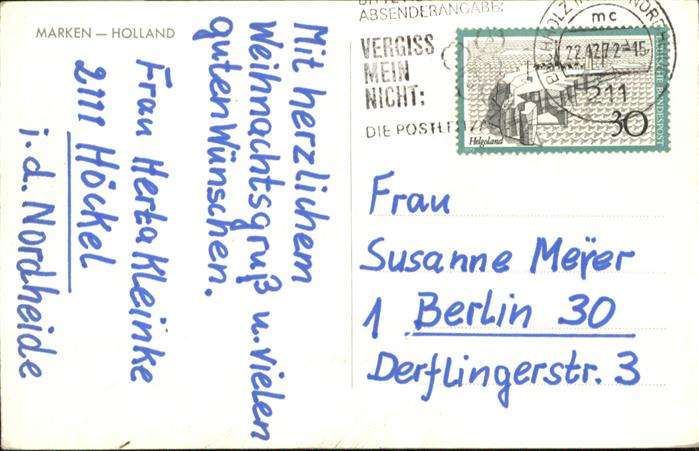 MARKEN — HOLLAND
Mit herzlichem
Weihnachtsgruß u. vielen
guten Wünschen.
Frau Herta Kleinke
2111 Höckel
i. d. Nordheide
ABSENDERANGABE:
VERGISS
MEIN
NICHT:
DIE POSTLEITZ
mc
22.12.72-16
211
Helgoland
30
DEUTSCHE BUNDESPOST
Frau
Susanne Meyer
1 Berlin 30
Derflingerstr. 3